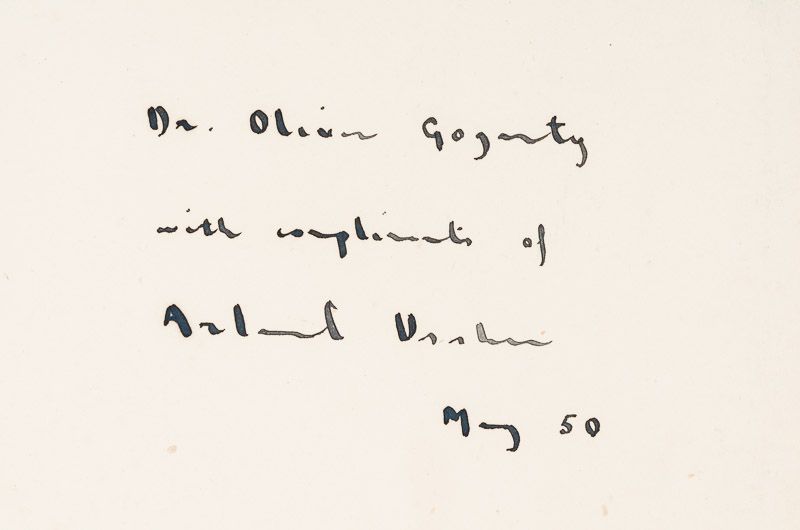 Dr. Oliver Gogarty
with compliments of
Arland Ussher
May 50